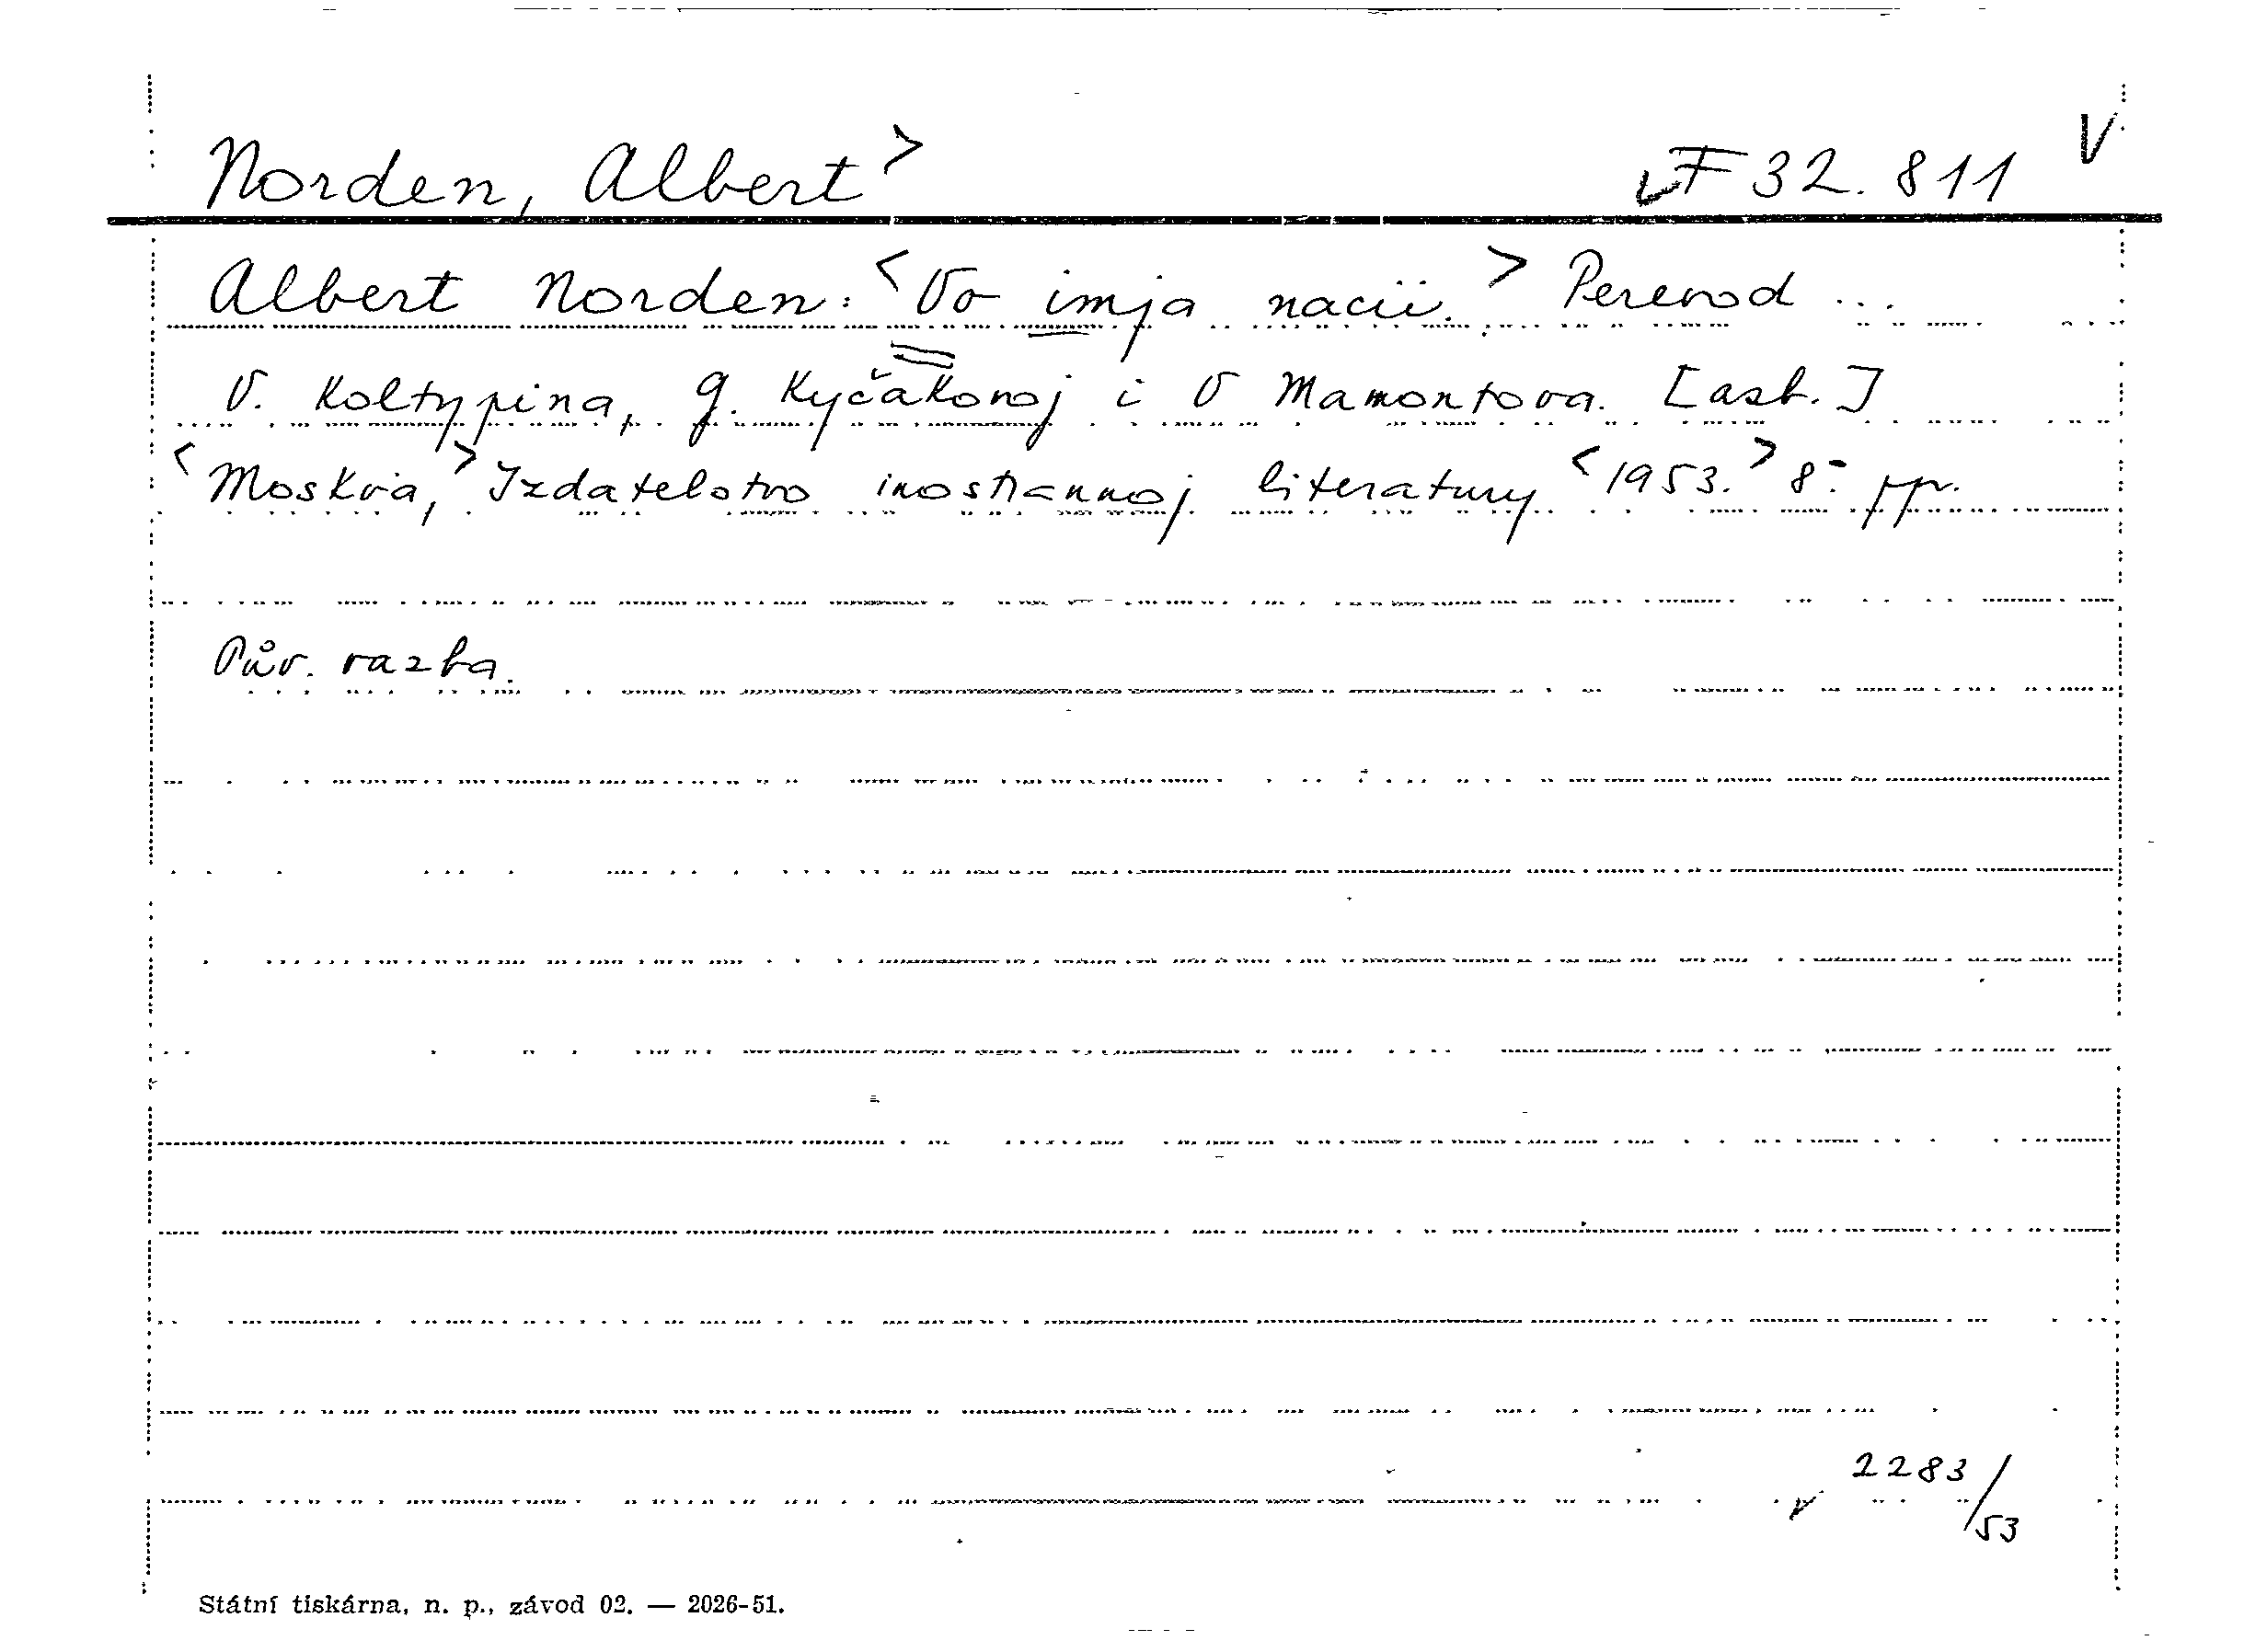 Norden, Albert> F 32.811 V
Albert Norden: <Vo imja nacii.> Perevod ...
V. Koltypina, G. Kyčakovoj i V Mamontova. [azb.]
<Moskva,> Izdatelstvo inostrannoj literatury <1953.> 8° pp.
Pův. vazba.
2283/53
Státní tiskárna, n. p., závod 02. — 2026-51.